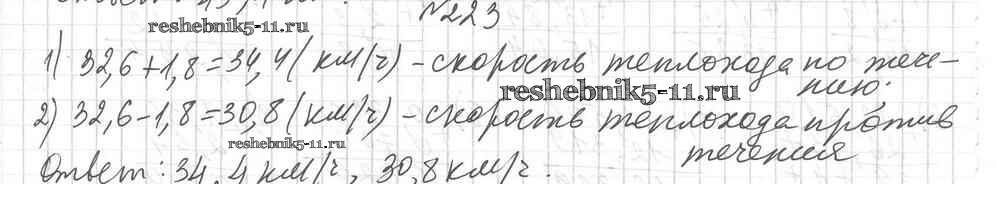 №223
reshebnik5-11.ru
1) 32,6+1,8=34,4(км/ч) - скорость теплохода по тече-
нию.
reshebnik5-11.ru
2) 32,6-1,8=30,8(км/ч) - скорость теплохода против
течения
reshebnik5-11.ru
Ответ: 34,4км/ч, 30,8км/ч.